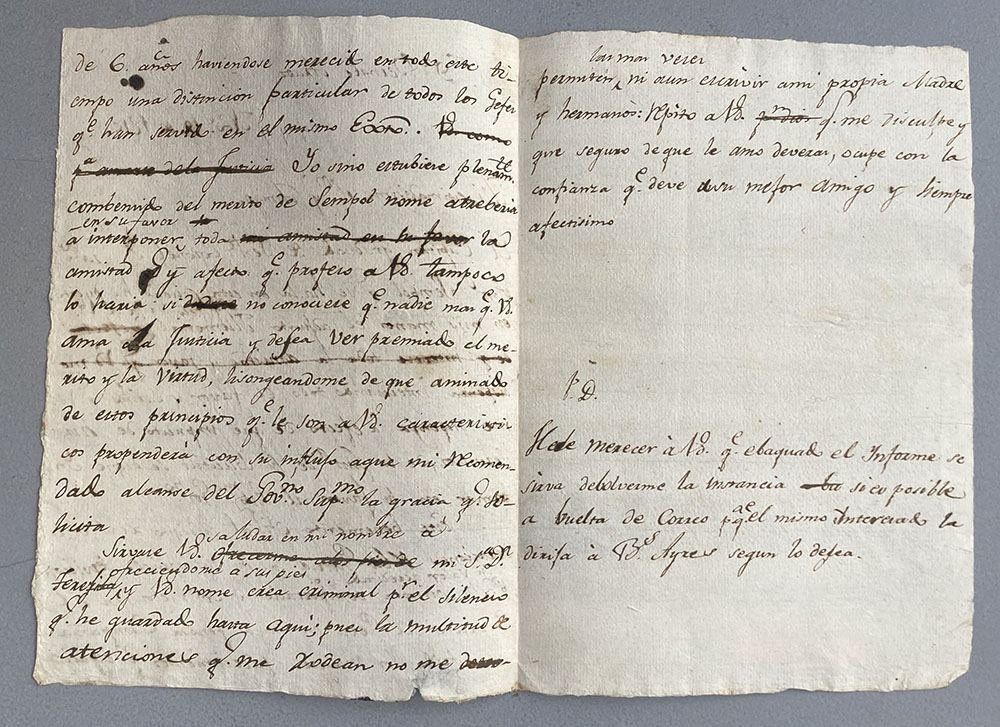 de 6. años haviendose merecido en todo este ti-
empo una distincion particular de todos los Gefes
q.e han servido en el mismo Exto. Vd. como
p.r amor de la Justicia Yo sino estubiere plenam.te
combenido del merito de Sempol nome atreberia
en su favor
à interponer, toda mi amistad en su favor la
amistad y afecto q.e profeso a Vd. tampoco
lo haria si no conociere q.e nadie mas q.e Vd.
ama la Justicia y desea ver premiado el me-
rito y la virtud, lisongeandome de que animado
de estos principios q.e le son a Vd. caracteristi-
cos propenderà con su influso aque mi recomen-
dado alcanse del Gov.no Sup.mo la gracia q.e so-
licita
saludar en mi nombre à
Sirvase Vd. ofrecerme a los pies de mi S.a D.a
ofreciendome à sus pies
Teresita y Vd. nome crea criminal p.r el silencio
q.e he guardado hasta aqui; pues la multitud de
atenciones q.e me rodean no me
las mas veces
permiten, ni aun escrivir ami propia Madre
y hermanos: repito a Vd. q.e me disculpe y
que seguro de que le amo deveras, ocupe con la
confianza q.e deve a su mejor amigo y siempre
afectisimo
P.D.
Hede merecer à Vd. q.e ebaquado el Informe se
sirva debolverme la instancia si es posible
a buelta de Correo p.a q.e el mismo Interesado la
dirija à B.s Ayres segun lo desea.